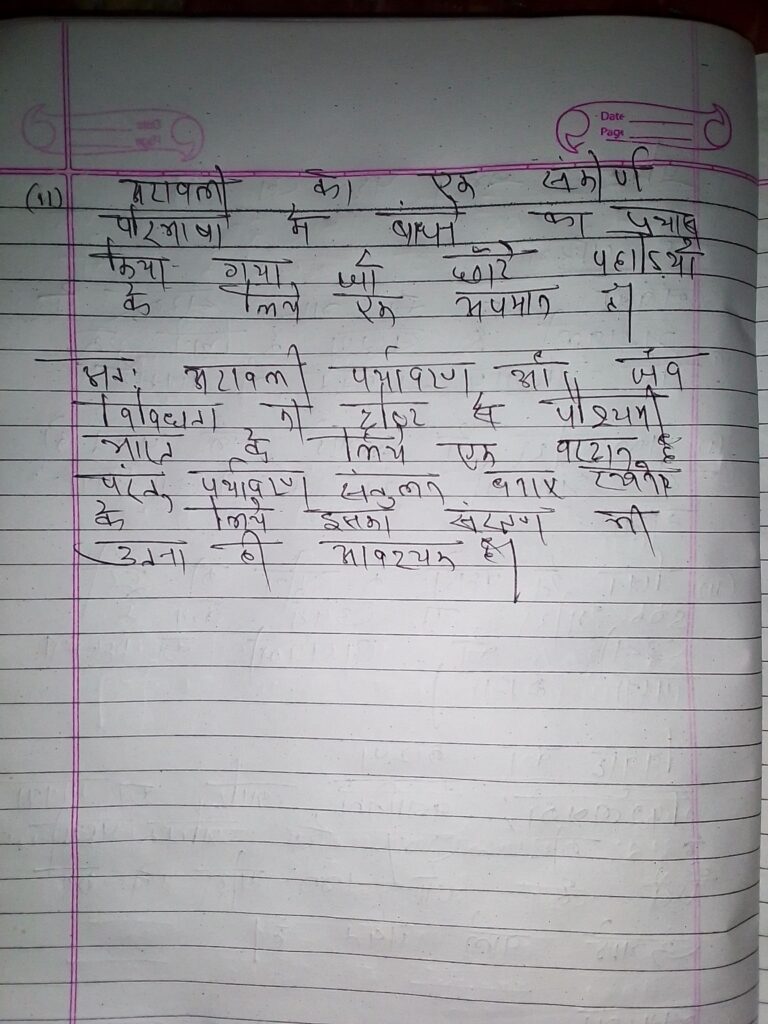 Date
Page
(11) अरावली को एक संकीर्ण
परिभाषा में बांधने का प्रयास
किया गया जो छोटे पहाड़ियों
के लिये एक अपमान है।
अतः अरावली पर्यावरण और जैव
विविधता की दृष्टि से पश्चिमी
भारत के लिये एक वरदान है
परंतु पर्यावरण संतुलन बनाए रखने
के लिये इसका संरक्षण भी
उतना ही आवश्यक है।